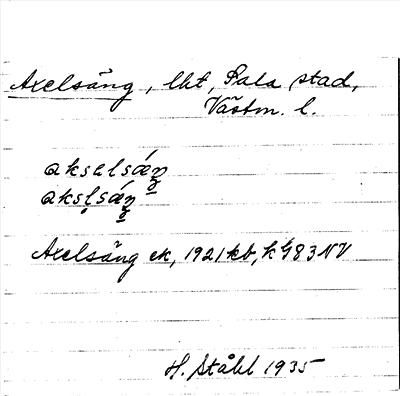 Axelsäng, lht, Sala stad,
Västm. l.
aksəlsǽŋ
aksl̥sǽŋ
Axelsäng ek, 1921 kb, kG83NV
H. Ståhl 1935